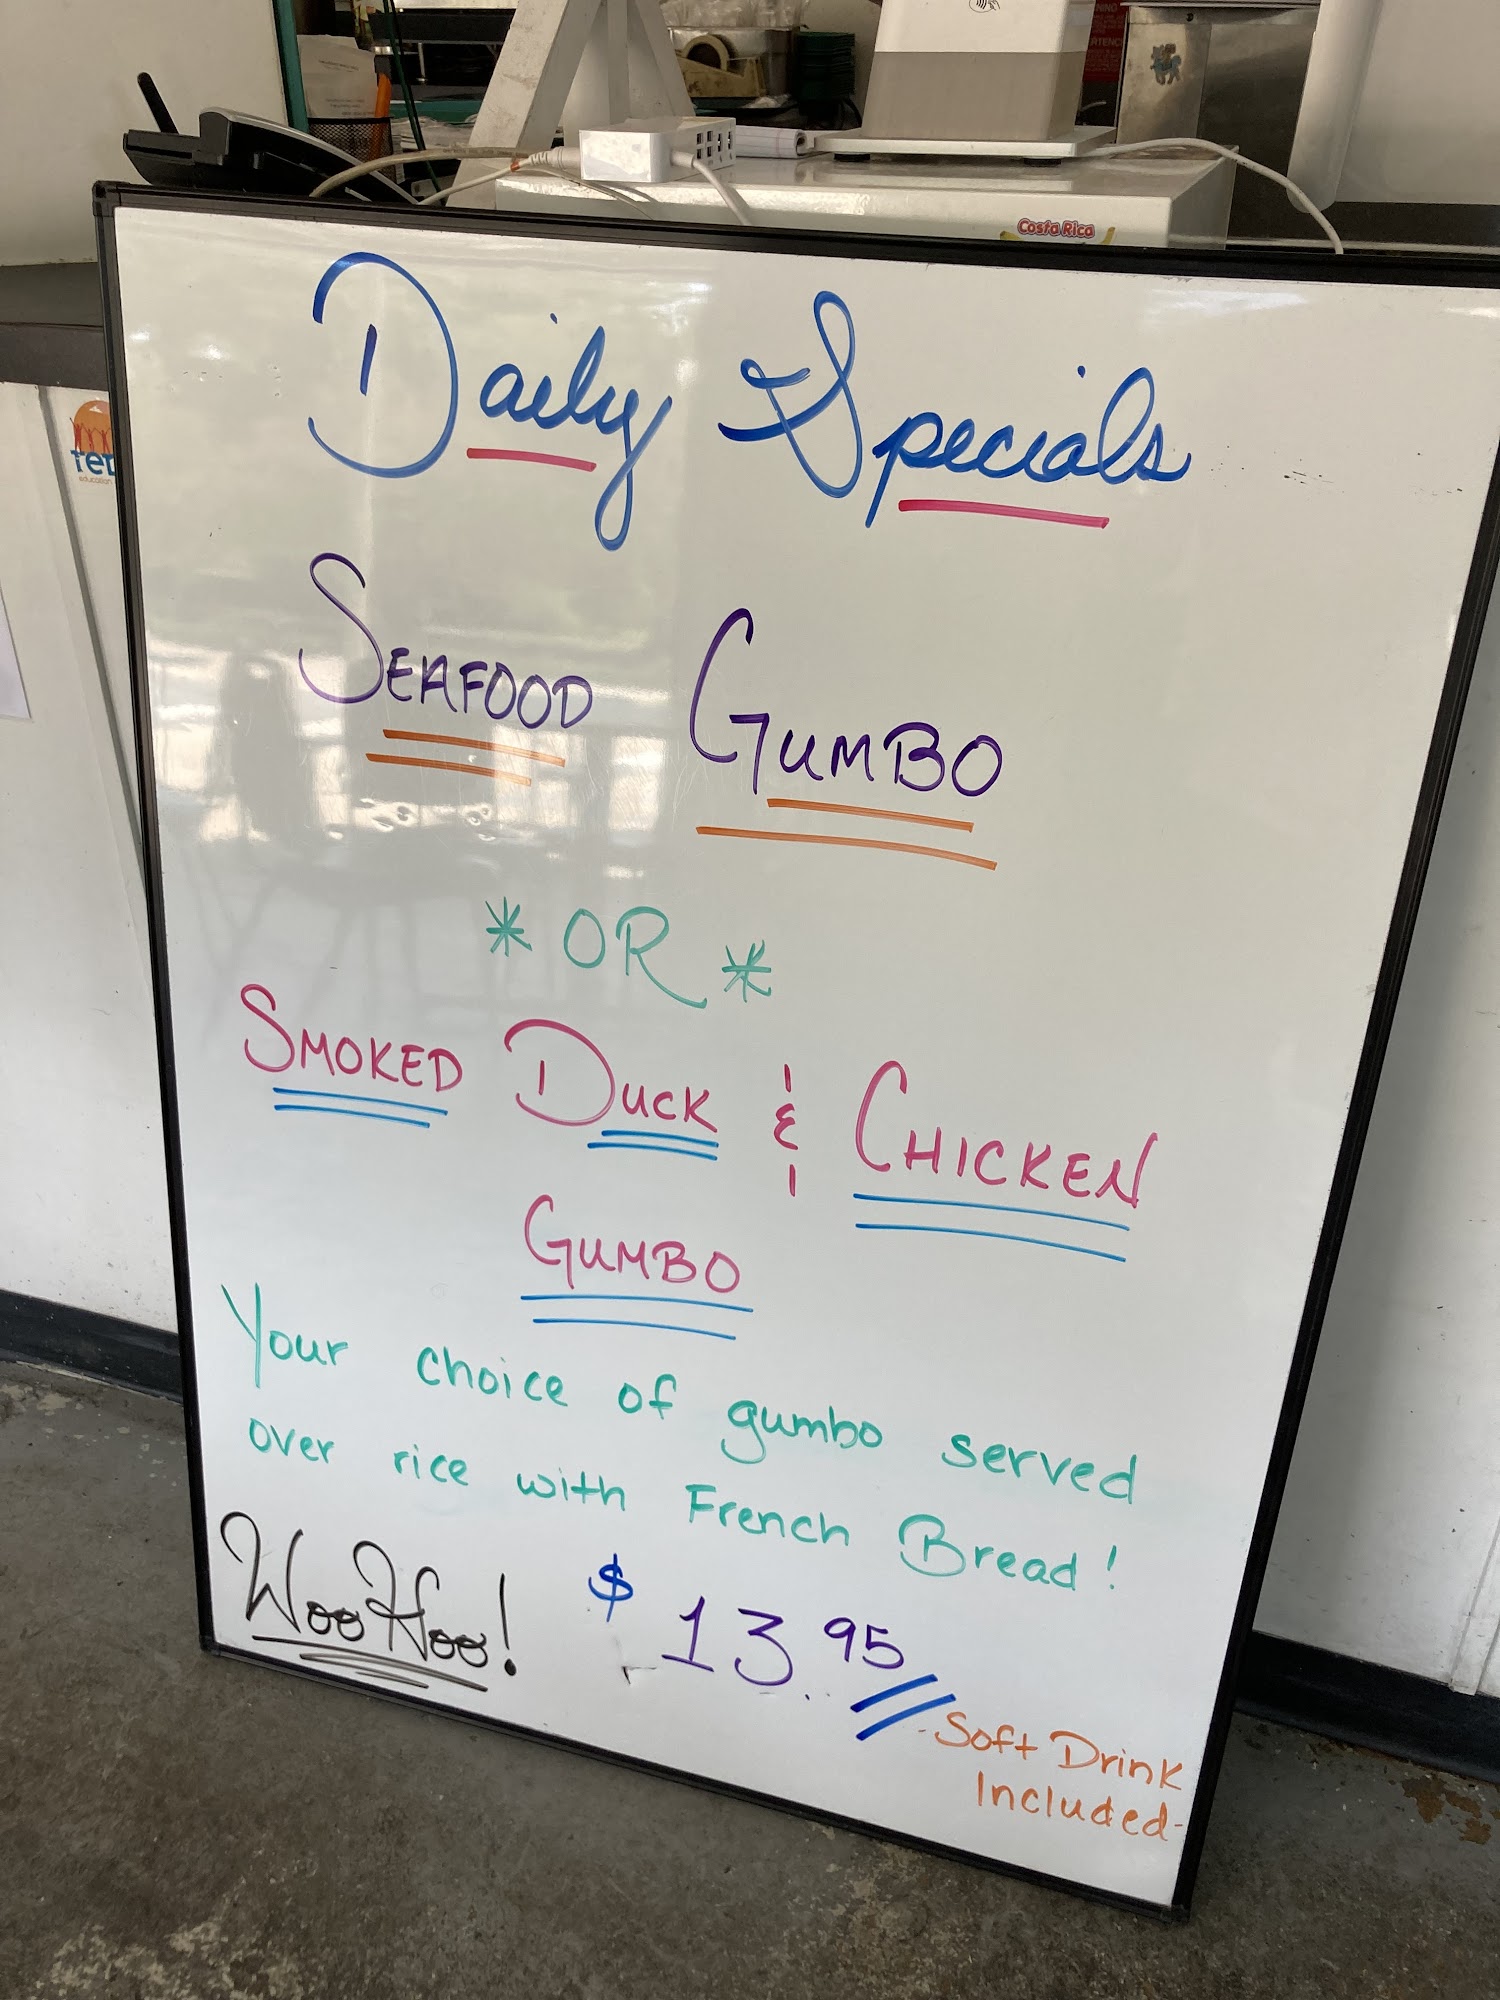 Costa Rica
Daily Specials
SEAFOOD GUMBO
* OR *
SMOKED DUCK & CHICKEN
GUMBO
Your choice of gumbo served
over rice with French Bread!
WooHoo! $13.95
-Soft Drink
Included-
education